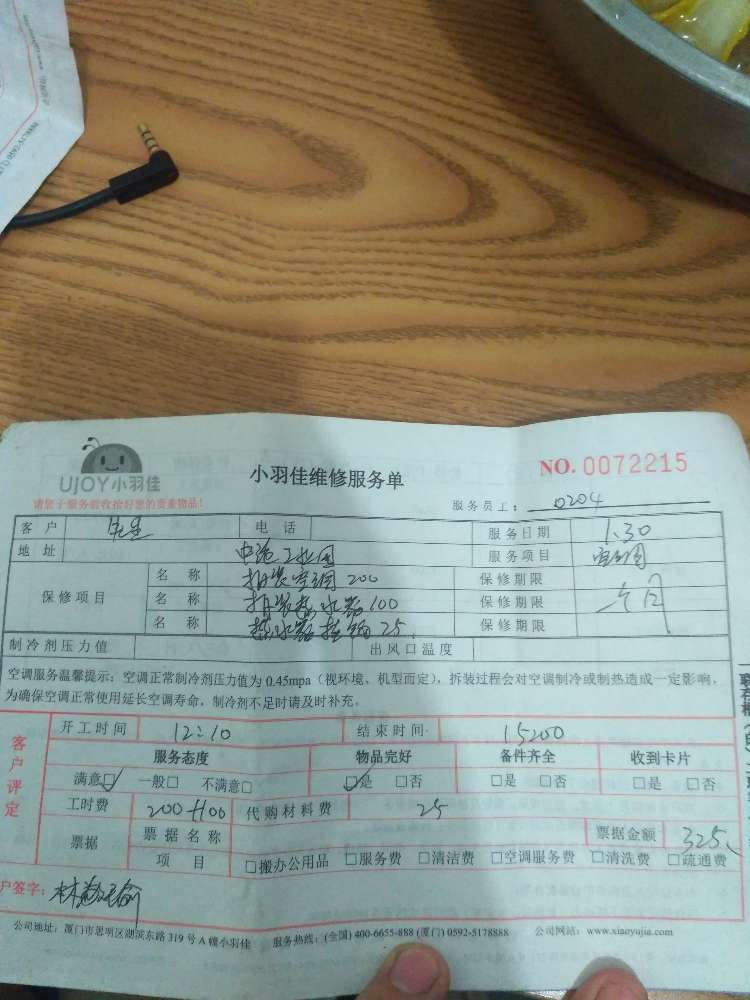 UJOY小羽佳
小羽佳维修服务单
NO. 0072215
请您于服务前收拾好您的贵重物品!
服务员工: 0204
客户 电话 服务日期 1.30
地址 中沧工业园 服务项目 空调
保修项目 名称 拆装空调 200 保修期限
名称 拆装热水器 100 保修期限
名称 热水器 25 保修期限
制冷剂压力值 出风口温度
空调服务温馨提示:空调正常制冷剂压力值为0.45mpa(视环境、机型而定),拆装过程会对空调制冷或制热造成一定影响,
为确保空调正常使用延长空调寿命,制冷剂不足时请及时补充。
客户评定
开工时间 12:10 结束时间 15:00
服务态度 物品完好 备件齐全 收到卡片
满意☑ 一般□ 不满意□ ☑是 □否 □是 □否 □是 □否
工时费 200+100 代购材料费 25
票据 票据名称 票据金额 325
项目 □搬办公用品 □服务费 □清洁费 □空调服务费 □清洗费 □疏通费
户签字:
公司地址:厦门市思明区湖滨东路319号A幢小羽佳 服务热线:(全国)400-6655-888 (厦门)0592-5178888 公司网站:www.xiaoyujia.com